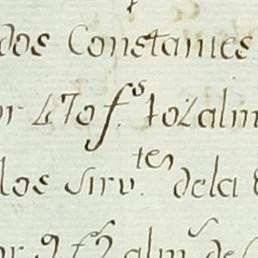 dos Constantes
or 470 f.s 10Zalm
los sirv.tes dela
or 9 f.s alm.s de